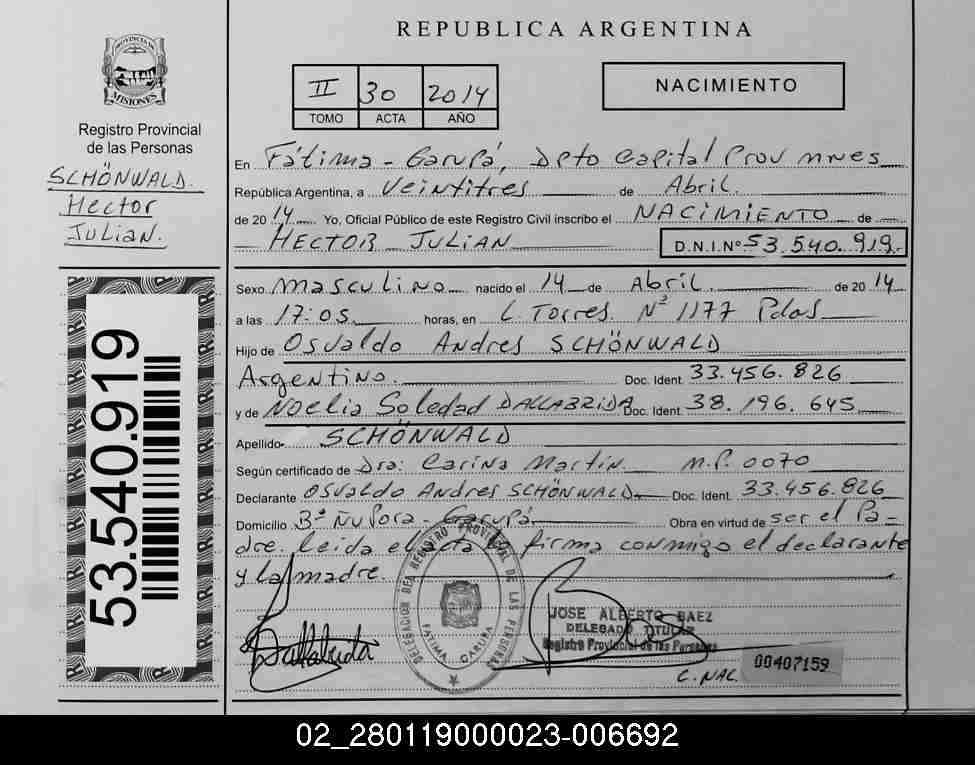 REPUBLICA ARGENTINA
PROVINCIA DE
MISIONES
Registro Provincial
de las Personas
SCHÖNWALD.
Hector
Julian.
53.540.919
II 30 2014
TOMO ACTA AÑO
NACIMIENTO
En Fátima - Garupá, Dpto Capital Prov mnes
República Argentina, a Veintitres de Abril.
de 2014 Yo, Oficial Público de este Registro Civil inscribo el NACIMIENTO de
HECTOR JULIAN D.N.I. Nº 53.540.919.
Sexo masculino nacido el 14 de Abril. de 2014
a las 17:05 horas, en L. Torres Nº 1177 Pdas
Hijo de Osvaldo Andres SCHÖNWALD
Argentino. Doc. Ident. 33.456.826
y de Noelia Soledad DALLABRIDA Doc. Ident. 38.196.645
Apellido SCHÖNWALD
Según certificado de Dra: Carina Martin. M.P. 0070
Declarante Osvaldo Andres SCHÖNWALD Doc. Ident. 33.456.826
Domicilio Bº Ñu Pora - Garupá Obra en virtud de ser el Pa-
dre. leida el acta firma conmigo el declarante
y la madre.
Dallabrida
DELEGACION DEL REGISTRO PROVINCIAL DE LAS PERSONAS
FATIMA GARUPA
JOSE ALBERTO BAEZ
DELEGADO TITULAR
Registro Provincial de las Personas
C. NAC. 00407159
02_280119000023-006692